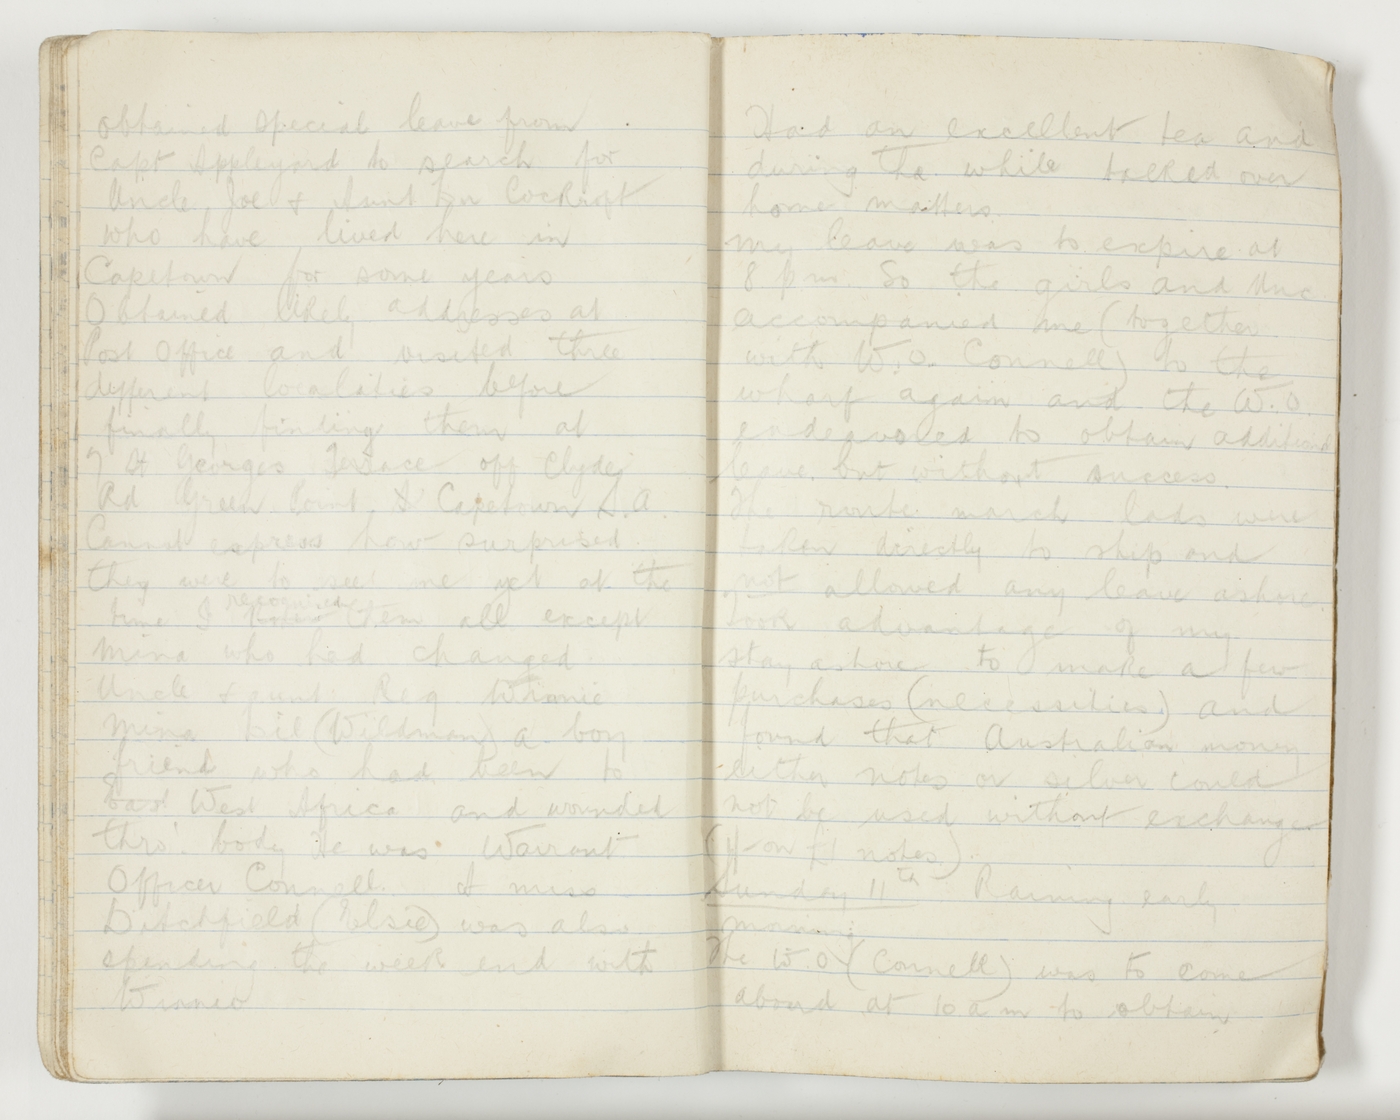 obtained special leave from
Capt Appleyard to search for
Uncle Joe & Aunt Em Cockroft
who have lived here in
Capetown for some years
Obtained likely addresses at
Post Office and visited three
different localities before
finally finding them at
7 St Georges Terrace off Clyde
Rd Green Point, Capetown S.A.
Cannot express how surprised
they were to see me yet at the
time I recognised them all except
Mina who had changed.
Uncle & aunt Reg Winnie
Mina Lil (Wildman) a boy
friend who had been to
East West Africa and wounded
thro' body He was Warrant
Officer Connell. A miss
Ditchfield (Elsie) was also
spending the week end with
Winnie
Had an excellent tea and
during the while talked over
home matters.
My leave was to expire at
8 pm. So the girls and Unc
accompanied me (together
with W.O. Connell) to the
wharf again and the W.O.
endeavored to obtain additional
leave but without success.
The route march lads were
taken directly to ship and
not allowed any leave ashore.
Took advantage of my
stay ashore to make a few
purchases (necessities) and
found that Australian money
either notes or silver could
not be used without exchange
on £1 notes).
Sunday 11th Raining early
morning
The W.O. (Connell) was to come
aboard at 10 am to obtain